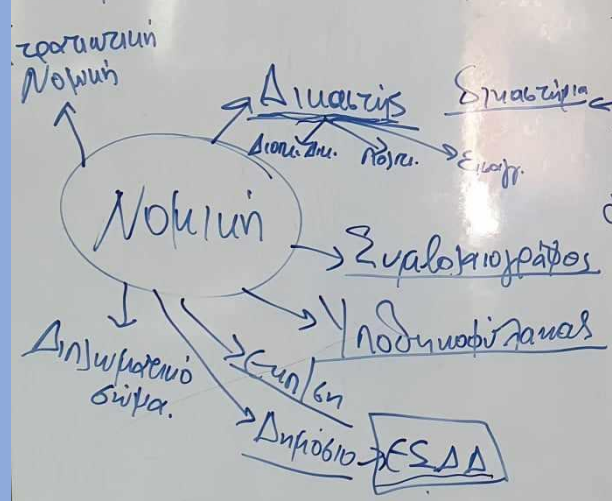 τρατιωτική
Νομική
Δικαστής
Δικαστήρια
Διοικ. Δικ.
Πολιτ.
Εισαγ.
Νομική
Συμβολαιογράφος
Υποθηκοφύλακας
Διπλωματικό
σώμα.
Εκπ/ση
Δημόσιο
ΕΣΔΔ